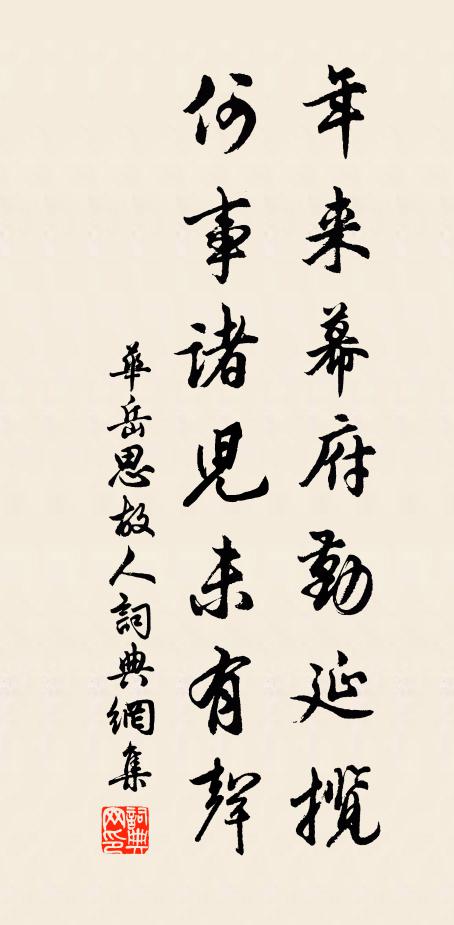 年来幕府勤延揽
何事諸児未有聲
華岳思故人詞典網集
詞典網印